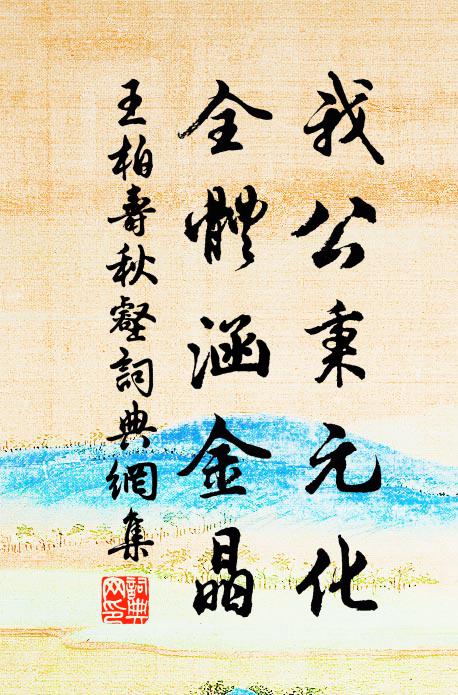 我公秉元化
全體涵金晶
王柏壽秋壑詞典網集
詞典